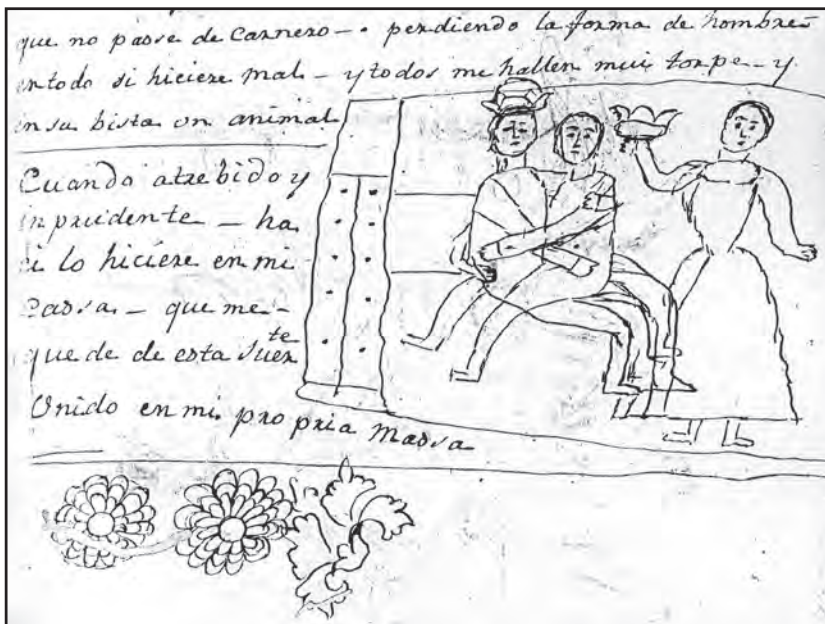 que no passe de Carnero - . perdiendo la forma de hombre
en todo si hiciere mal - y todos me hallen mui torpe - y
en su bista un animal
Cuando atrebido y
inprudente - ha
si lo hiciere en mi
Cassa - que me -
que de de esta suerte
Unido en mi propria Massa